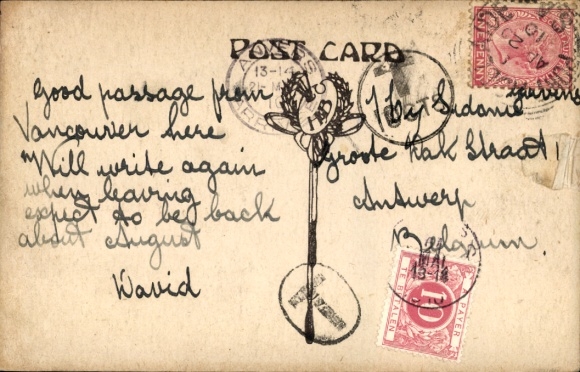 POST CARD
Good passage from
Vancouver here
Will write again
when leaving
expect to be back
about August
David
Sidonie
Groote Kak Straat 1
Antwerp
Belgium
ONE PENNY
T
10
13-14
T
MAI
13-14
A PAYER
10
TE BETALEN